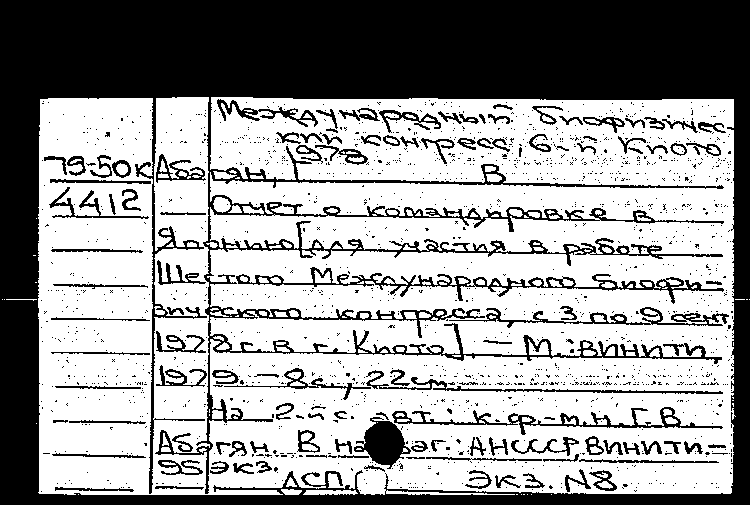 Международный биофизичес-
кий конгресс, 6-й. Киото.
1978
79-50к Абагян, В
4412 Отчет о командировке в
Японию [для участия в работе
Шестого Международного биофи-
зического конгресса, с 3 по 9 сент.
1978 г. в г. Киото]. — М.: ВИНИТИ,
1979. — 8 с.; 22 см.
На 2-й с. авт.: к.ф.-м.н. Г.В.
Абагян. В на заг.: АН СССР, ВИНИТИ.—
95 экз.
ДСП. Экз. N8.